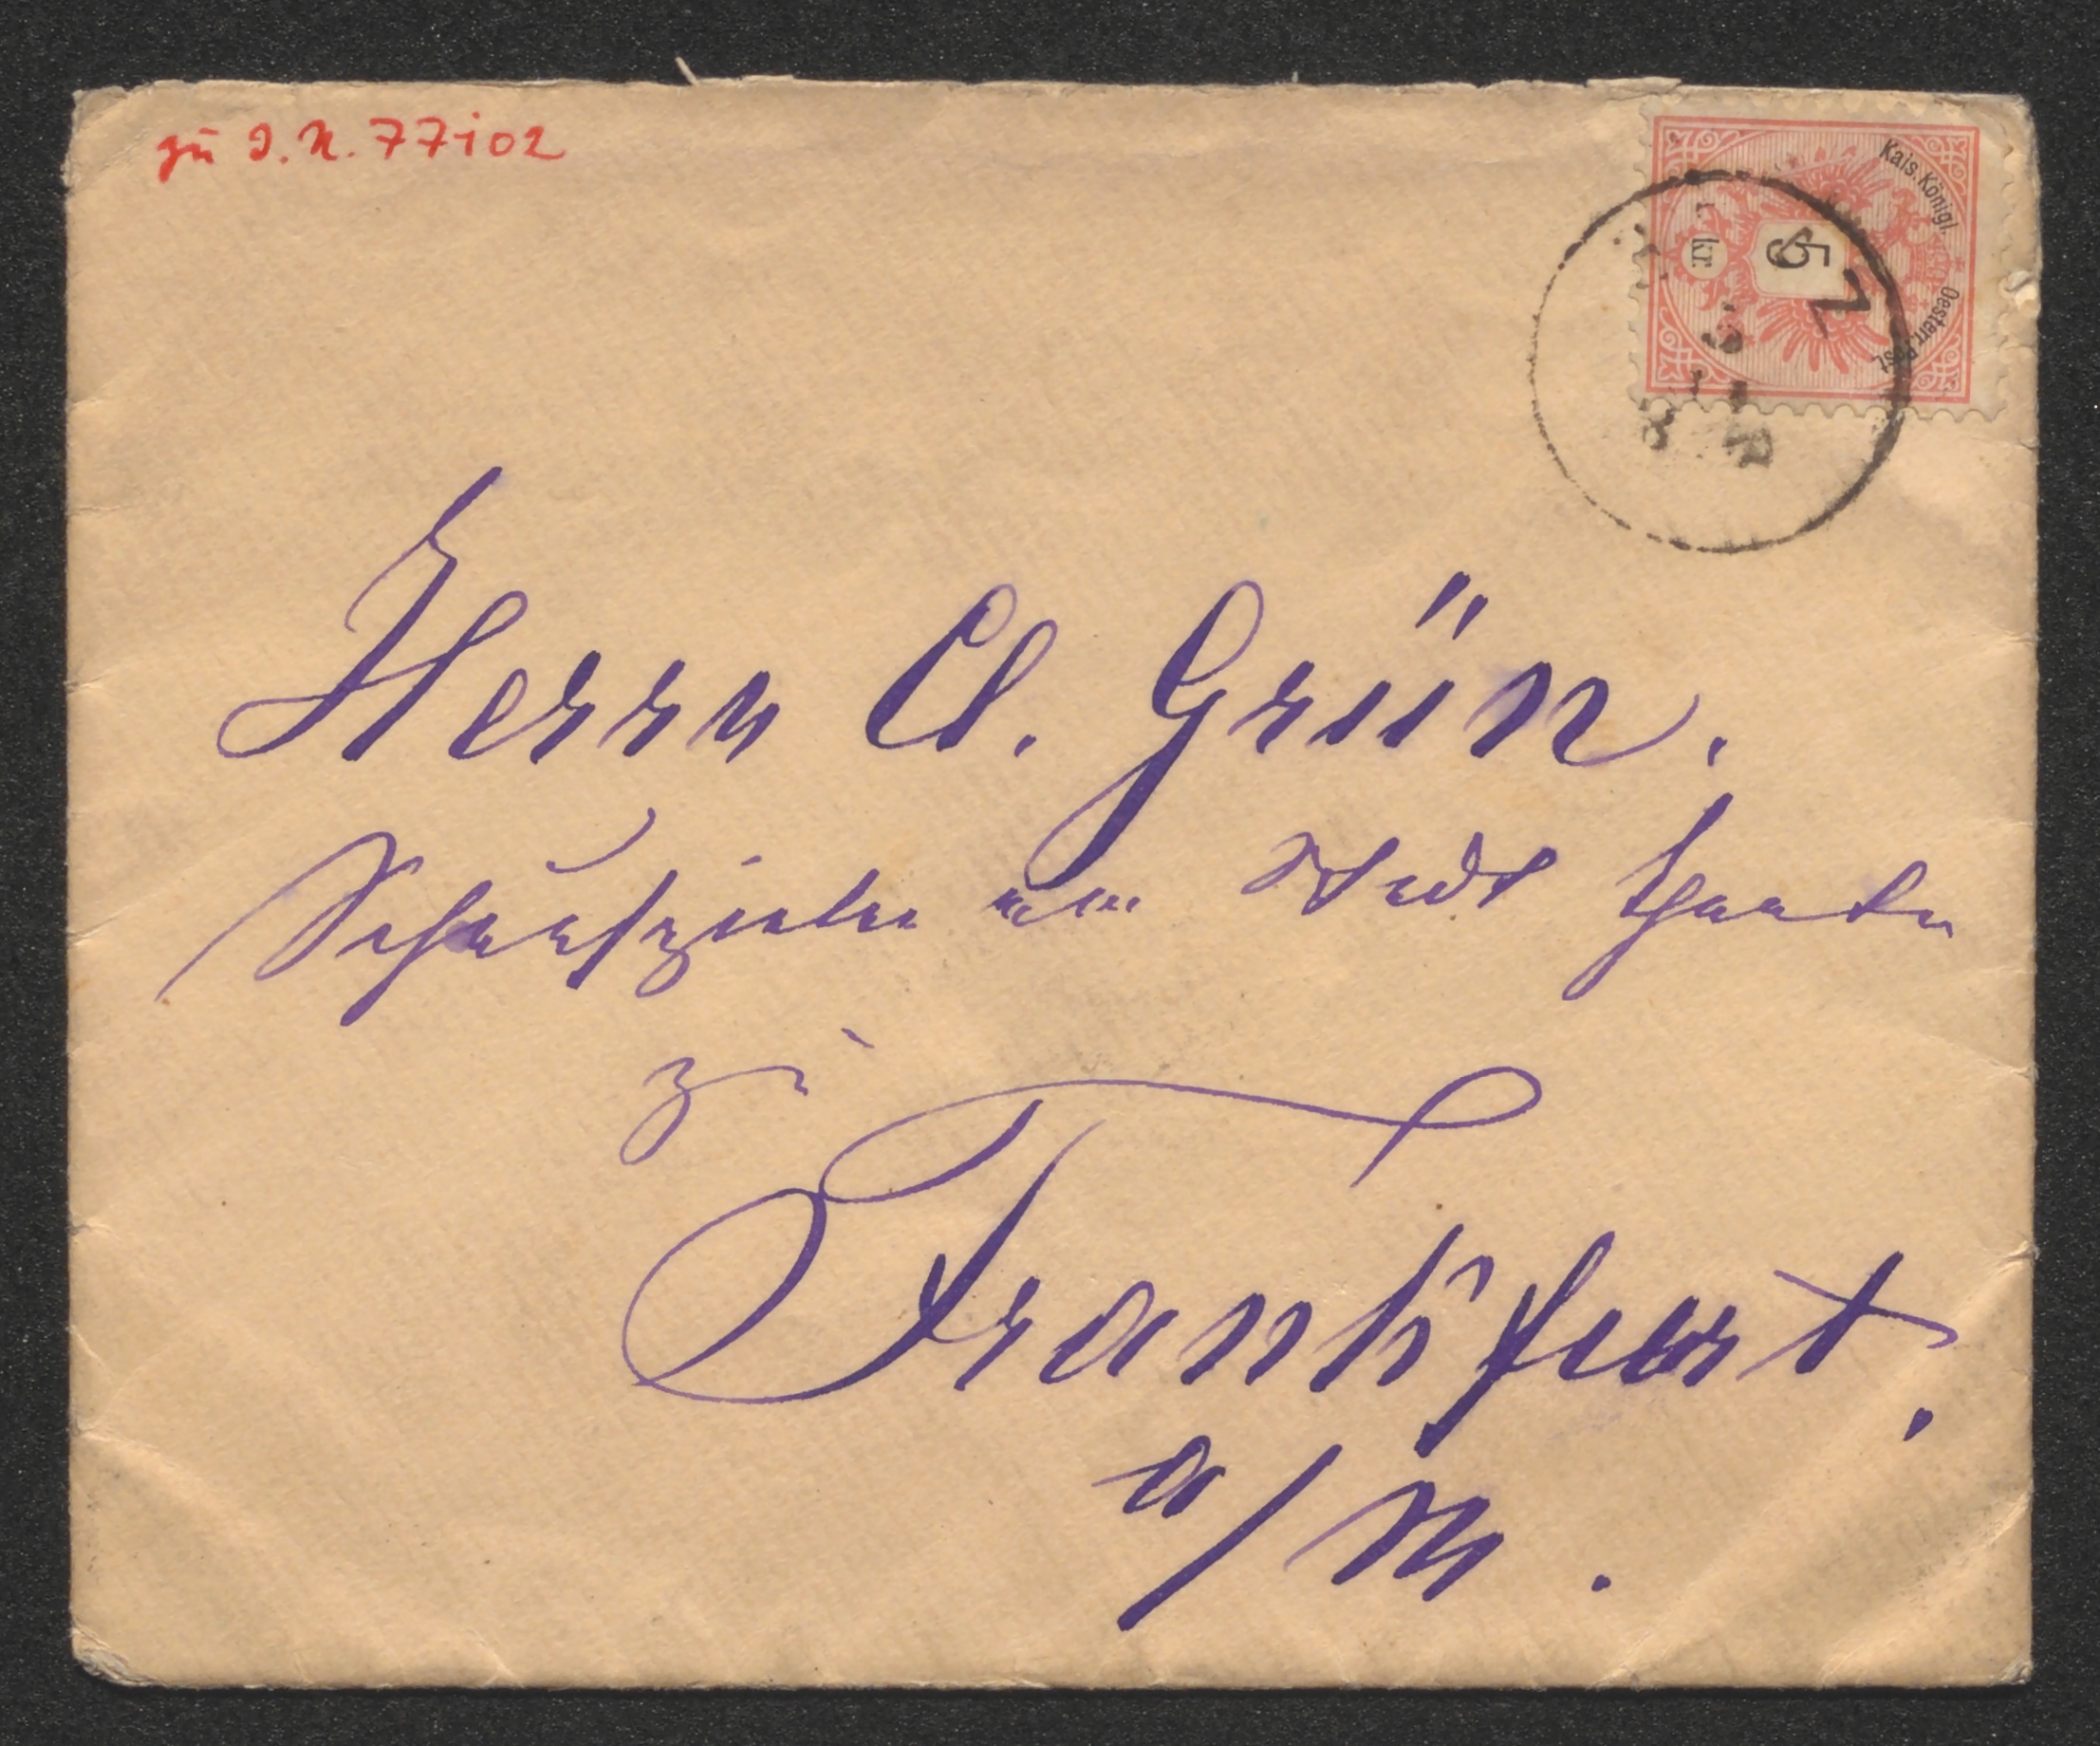 zu I.N. 77102
Kais. Königl. Oesterr. Post
5
kr.
Herrn Cl. Grün.
Schauspieler am Stadt Theater
zu
Frankfurt.
a/M.